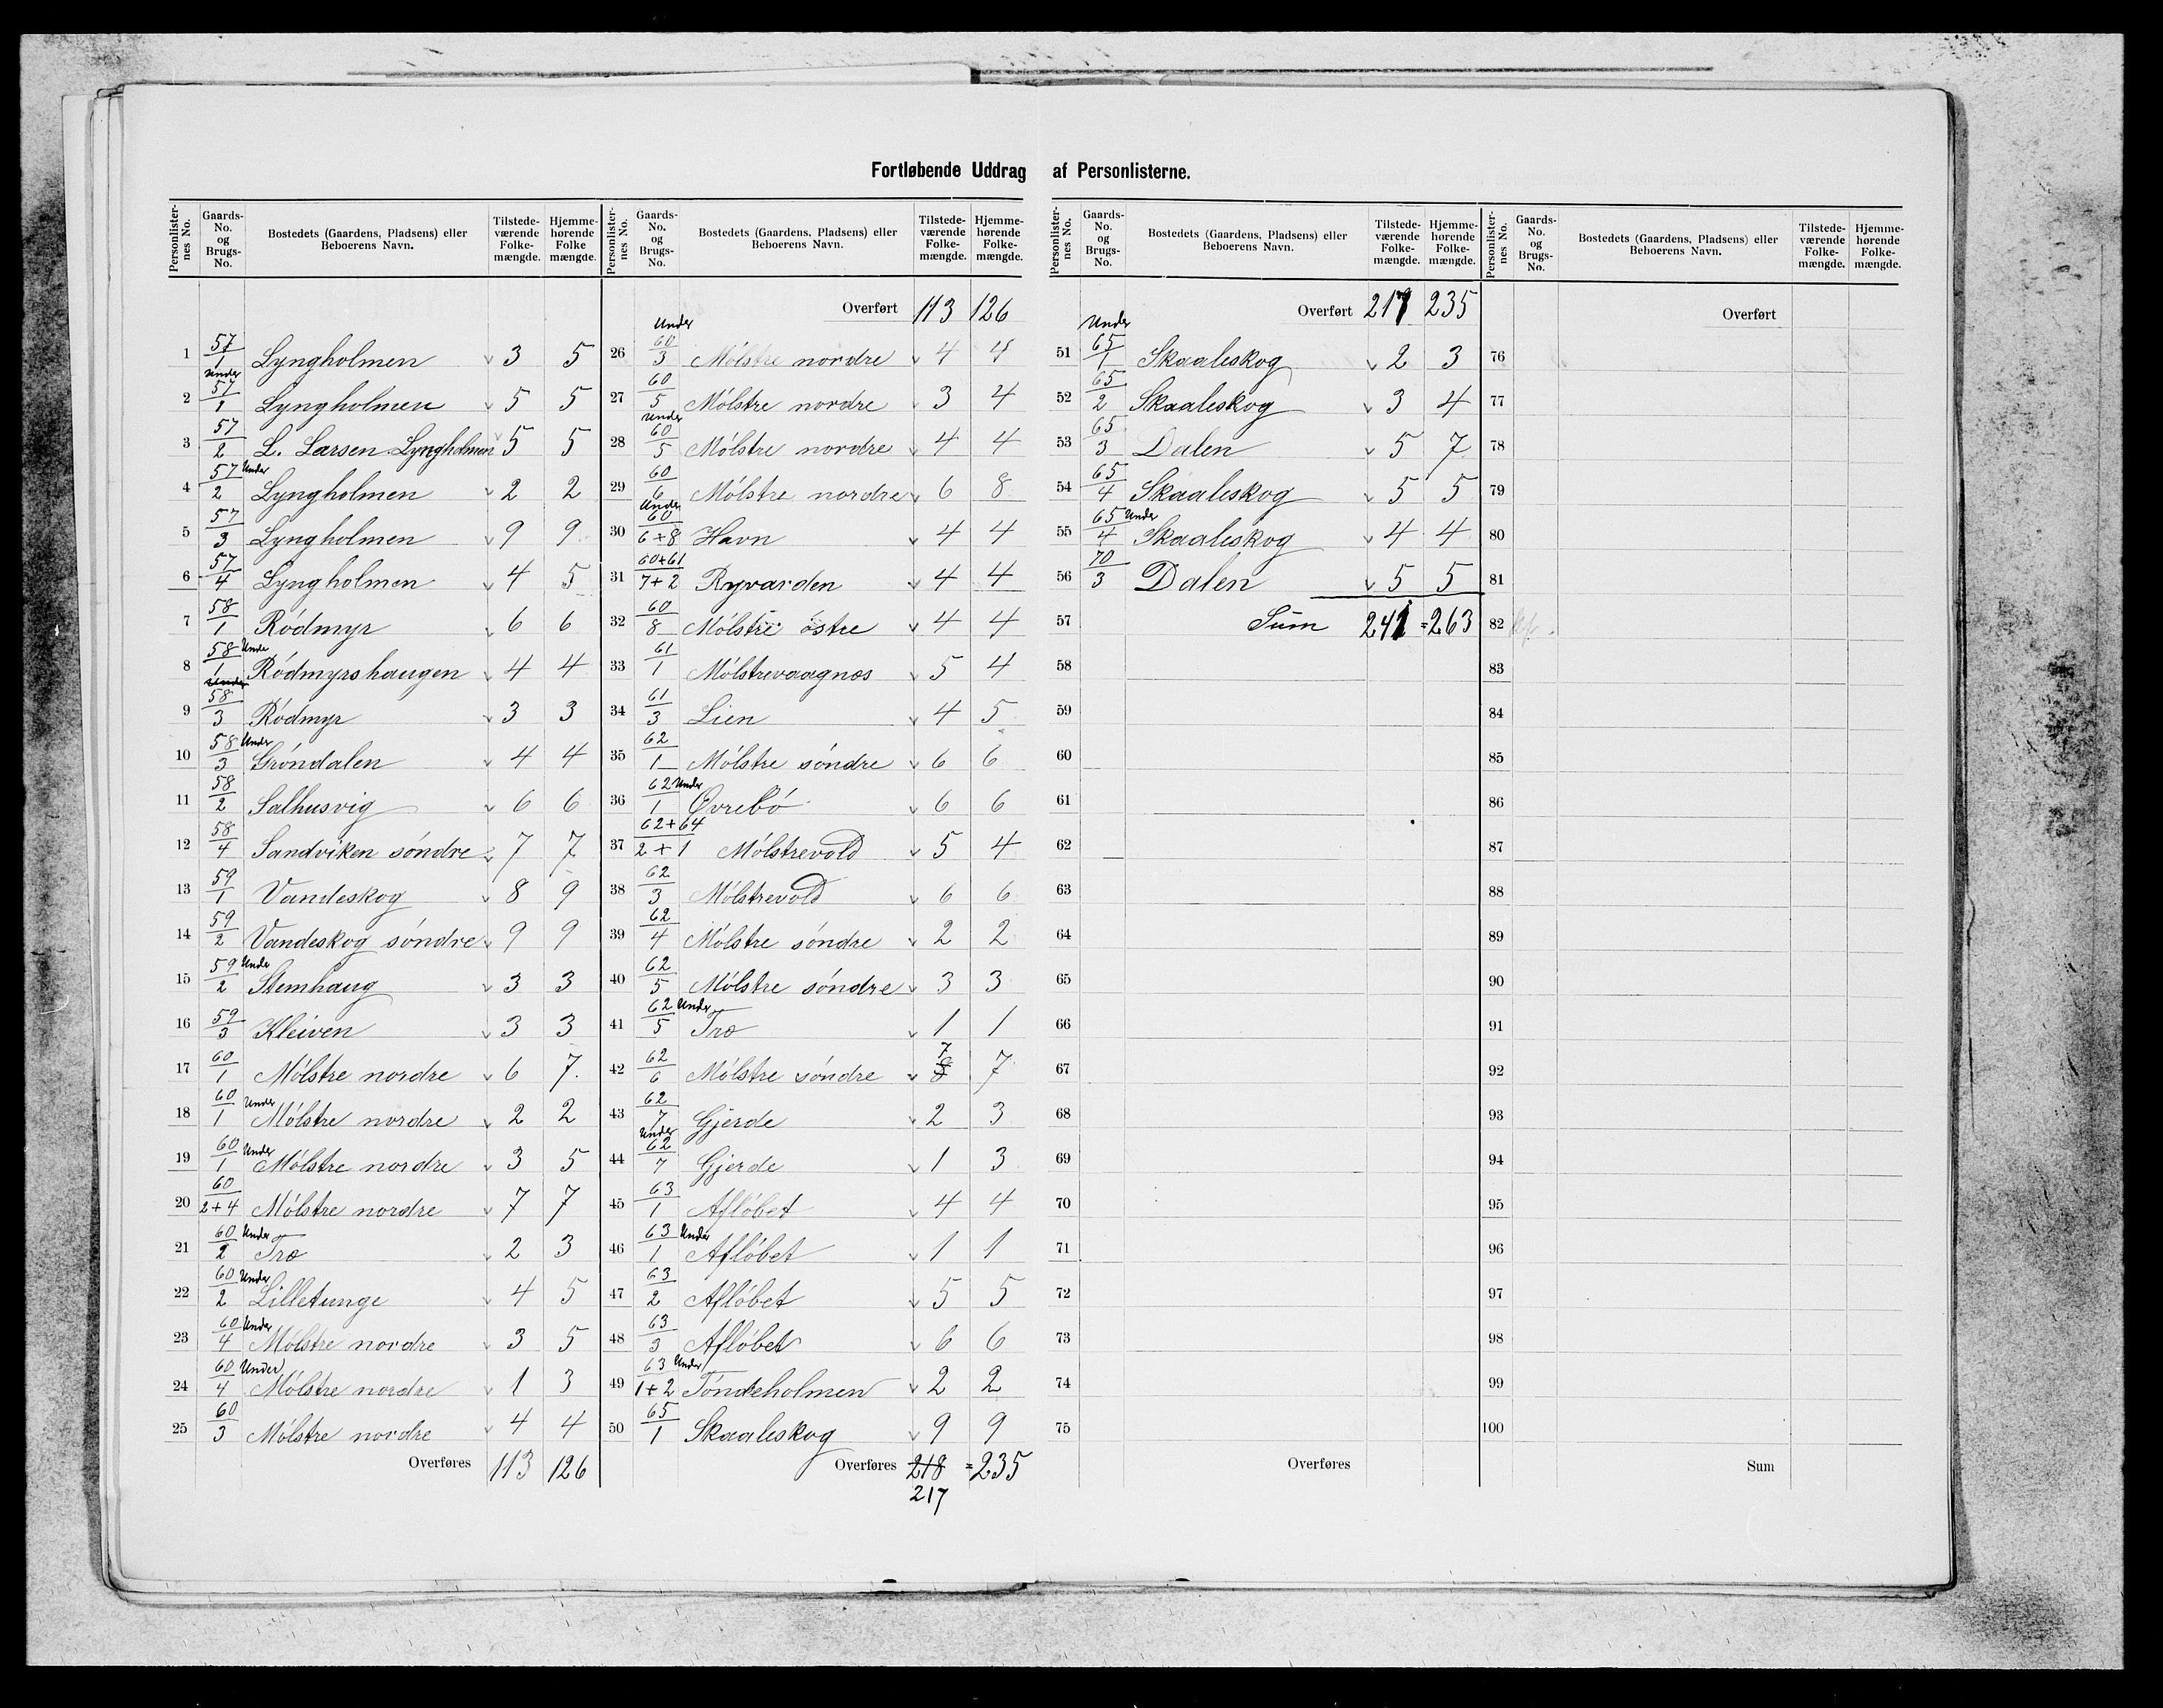 Fortløbende Uddrag af Personlisterne.
Personlister-nes No. | Gaards-No. og Brugs-No. | Bostedets (Gaardens, Pladsens) eller Beboerens Navn. | Tilstede-værende Folke-mængde. | Hjemme-hørende Folke mængde.
1 57/1 Lyngholmen v 3 5
2 Under 57/1 Lyngholmen v 5 5
3 57/2 L. Larsen Lyngholmen v 5 5
4 57/2 Under Lyngholmen v 2 2
5 57/3 Lyngholmen v 9 9
6 57/4 Lyngholmen v 4 5
7 58/1 Ródmyr v 6 6
8 58/1 Unde Ródmyrshaugen v 4 4
9 Under 58/3 Ródmyr v 3 3
10 58/3 Under Gróndalen v 4 4
11 58/2 Salhusvig v 6 6
12 58/4 Sandviken sóndre v 7 7
13 59/1 Vandeskog v 8 9
14 59/2 Vandeskog sóndre v 9 9
15 59/2 Unde Stemhaug v 3 3
16 59/3 Kleiven v 3 3
17 60/1 Mólstre nordre v 6 7
18 60/1 Under Mólstre nordre v 2 2
19 60/1 Under Mólstre nordre v 3 5
20 60/2+4 Mólstre nordre v 7 7
21 60/2 Under Træ v 2 3
22 60/2 Under Lilletunge v 4 5
23 60/4 Under Mólstre nordre v 3 5
24 60/4 Under Mólstre nordre v 1 3
25 60/3 Mólstre nordre v 4 4
Overføres 113 126
Personlister-nes No. | Gaards-No. og Brugs-No. | Bostedets (Gaardens, Pladsens) eller Beboerens Navn. | Tilstede-værende Folke-mængde. | Hjemme-hørende Folke-mængde.
Overført 113 126
26 Under 60/3 Mólstre nordre v 4 4
27 60/5 Mólstre nordre v 3 4
28 Under 60/5 Mólstre nordre v 4 4
29 60/6 Mólstre nordre v 6 8
30 Under 60/6+8 Havn v 4 4
31 60+61/7+2 Ryvarden v 4 4
32 60/8 Mólstre óstre v 4 4
33 61/1 Mólstrevaagnæs v 5 4
34 61/3 Lien v 4 5
35 62/1 Mólstre sóndre v 6 6
36 62/1 Under Øvrebó v 6 6
37 62+64/2+1 Mólstrevold v 5 4
38 62/3 Mólstrevold v 6 6
39 62/4 Mólstre sóndre v 2 2
40 62/5 Mólstre sóndre v 3 3
41 62/5 Under Træ v 1 1
42 62/6 Mólstre sóndre v 8 7 7
43 62/7 Gjerde v 2 3
44 Under 62/7 Gjerde v 1 3
45 63/1 Aflóbet v 4 4
46 63/1 Under Aflóbet v 1 1
47 63/2 Aflóbet v 5 5
48 63/3 Aflóbet v 6 6
49 63/1+2 Under Tóndeholmen v 2 2
50 65/1 Skaaleskog v 9 9
Overføres 218 = 235
217
Personlister-nes No. | Gaards-No. og Brugs-No. | Bostedets (Gaardens, Pladsens) eller Beboerens Navn. | Tilstede-værende Folke-mængde. | Hjemme-hørende Folke-mængde.
Overført 217 235
51 Under 65/1 Skaaleskog v 2 3
52 65/2 Skaaleskog v 3 4
53 65/3 Dalen v 5 7
54 65/4 Skaaleskog v 5 5
55 65/4 Under Skaaleskog v 4 4
56 70/3 Dalen v 5 5
57 Sum 241 = 263
58
59
60
61
62
63
64
65
66
67
68
69
70
71
72
73
74
75
Overføres
Personlister-nes No. | Gaards-No. og Brugs-No. | Bostedets (Gaardens, Pladsens) eller Beboerens Navn. | Tilstede-værende Folke-mængde. | Hjemme-hørende Folke-mængde.
Overført
76
77
78
79
80
81
82
83
84
85
86
87
88
89
90
91
92
93
94
95
96
97
98
99
100
Sum